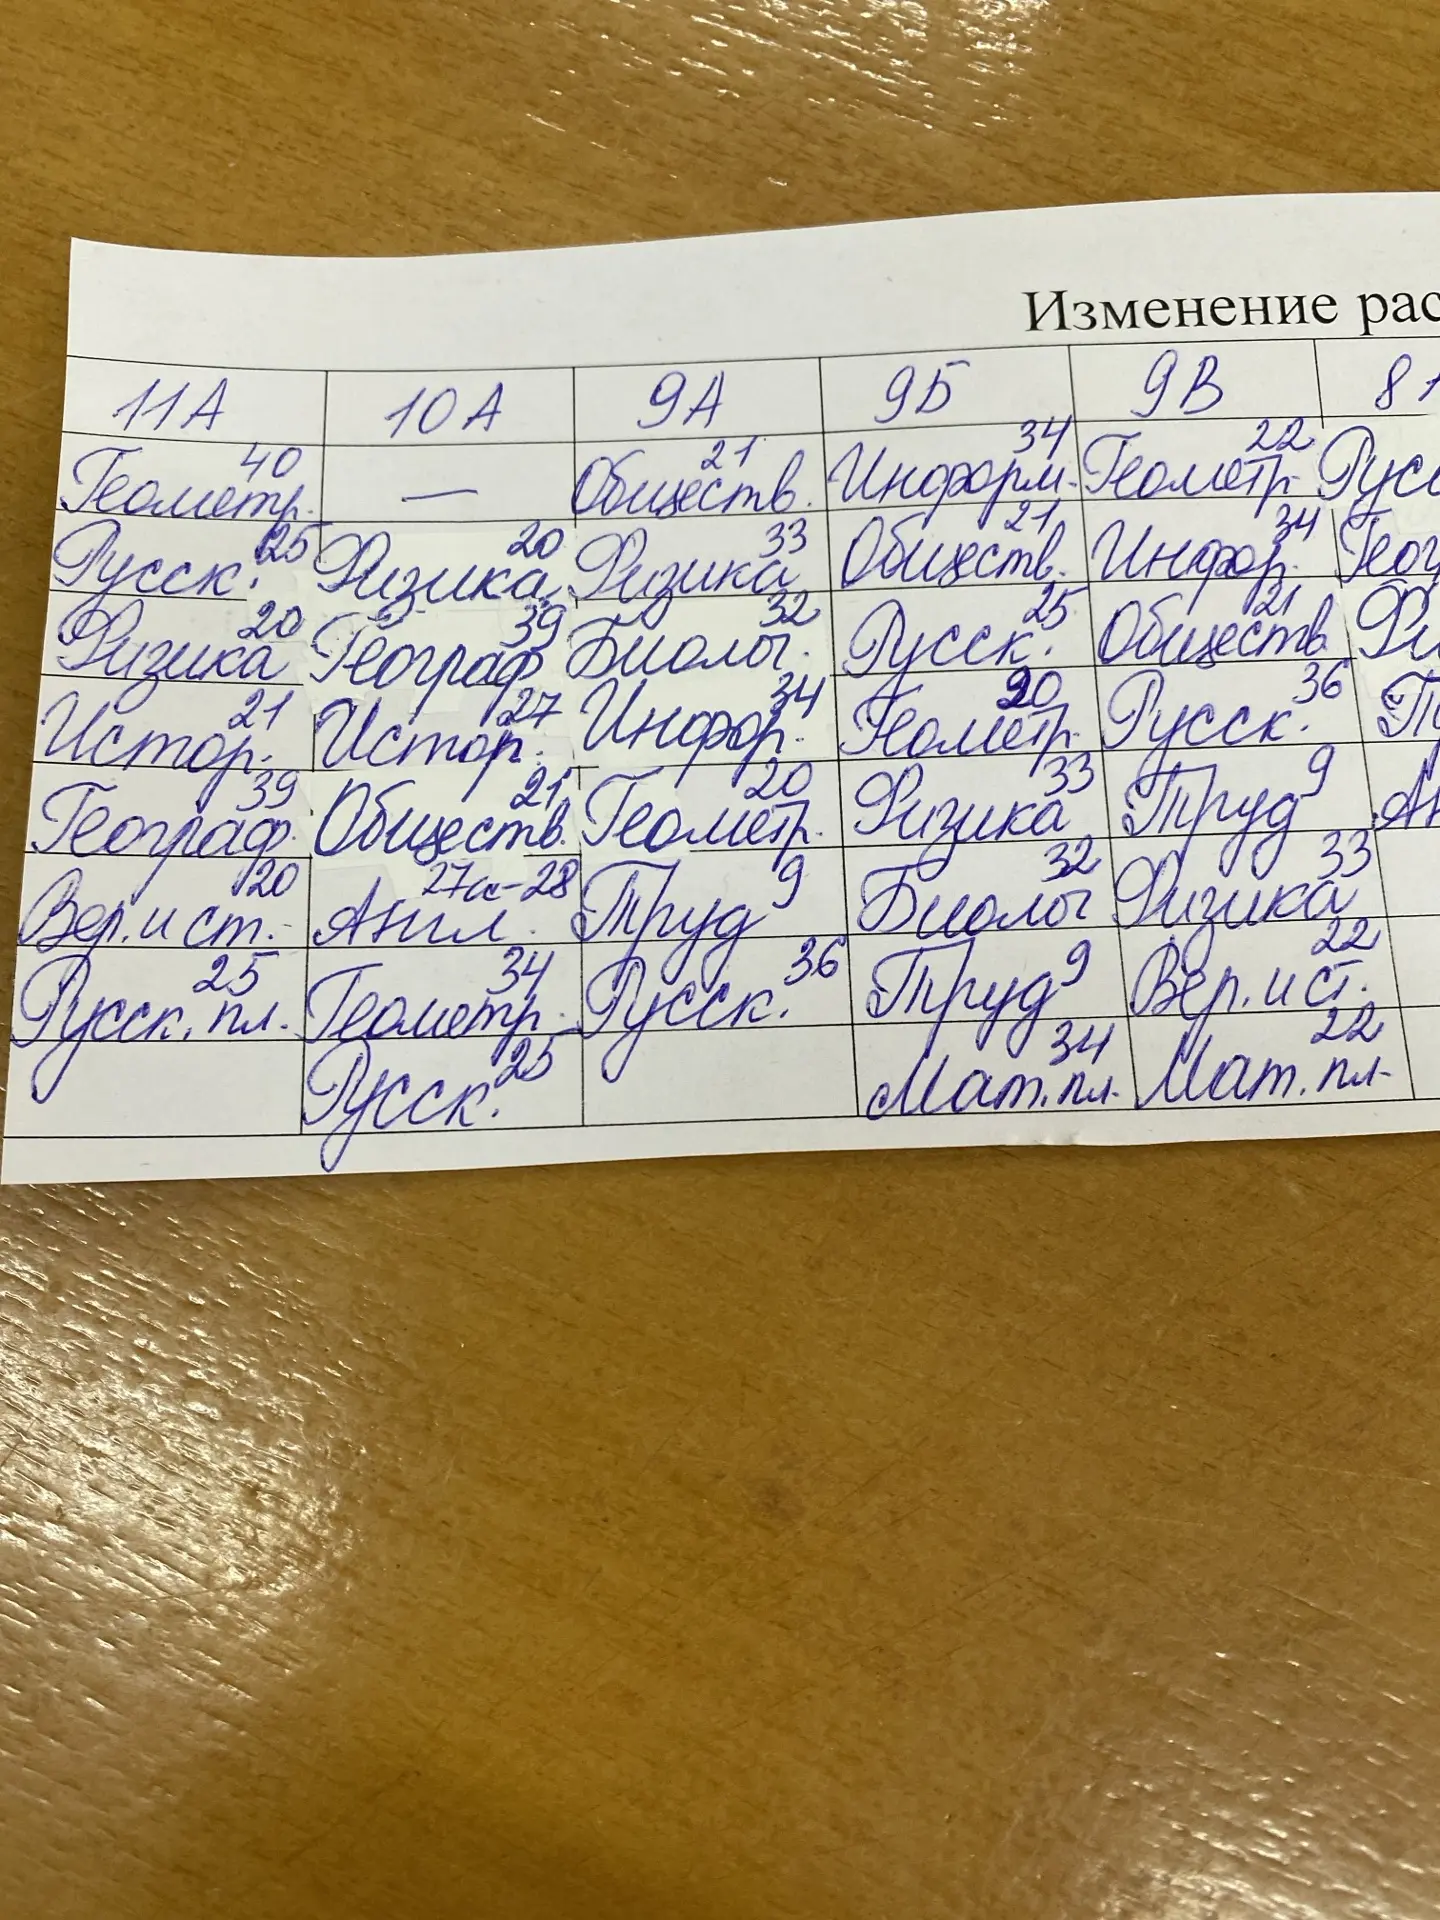 Изменение рас
11А 10А 9А 9Б 9В 8
Геометр. 40 — Обществ. 21 Информ. 34 Геометр. 22 Русс
Русск. 25 Физика 20 Физика 33 Обществ. 21 Инфор. 34 Геог
Физика 20 Географ 39 Биолог. 32 Русск. 25 Обществ 21 Фи
Истор. 21 Истор. 27 Инфор. 34 Геометр. 20 Русск. 36
Географ. 39 Обществ. 21 Геометр. 20 Физика 33 Труд 9 Ан
Вер. и ст. 20 Англ. 27а-28 Труд 9 Биолог 32 Физика 33
Русск. пл. 25 Геометр. 34 Русск. 36 Труд 9 Вер. и ст. 22
Русск. 25 Мат. пл. 34 Мат. пл. 22